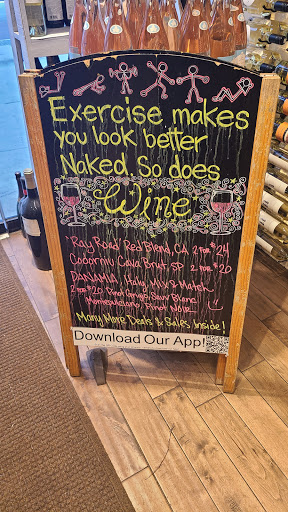 Exercise makes
you look better
Naked. So does
Wine
Ray Road Red Blend, CA 2 FOR $24
Codorniu Cava Brut, SP 2 FOR $20
DANAMIA, Italy, Mix & Match
2 FOR $20 Pinot Grigio, Sauv Blanc,
Montepulciano, Pinot Noir
Many More Deals & Sales Inside!
Download Our App!